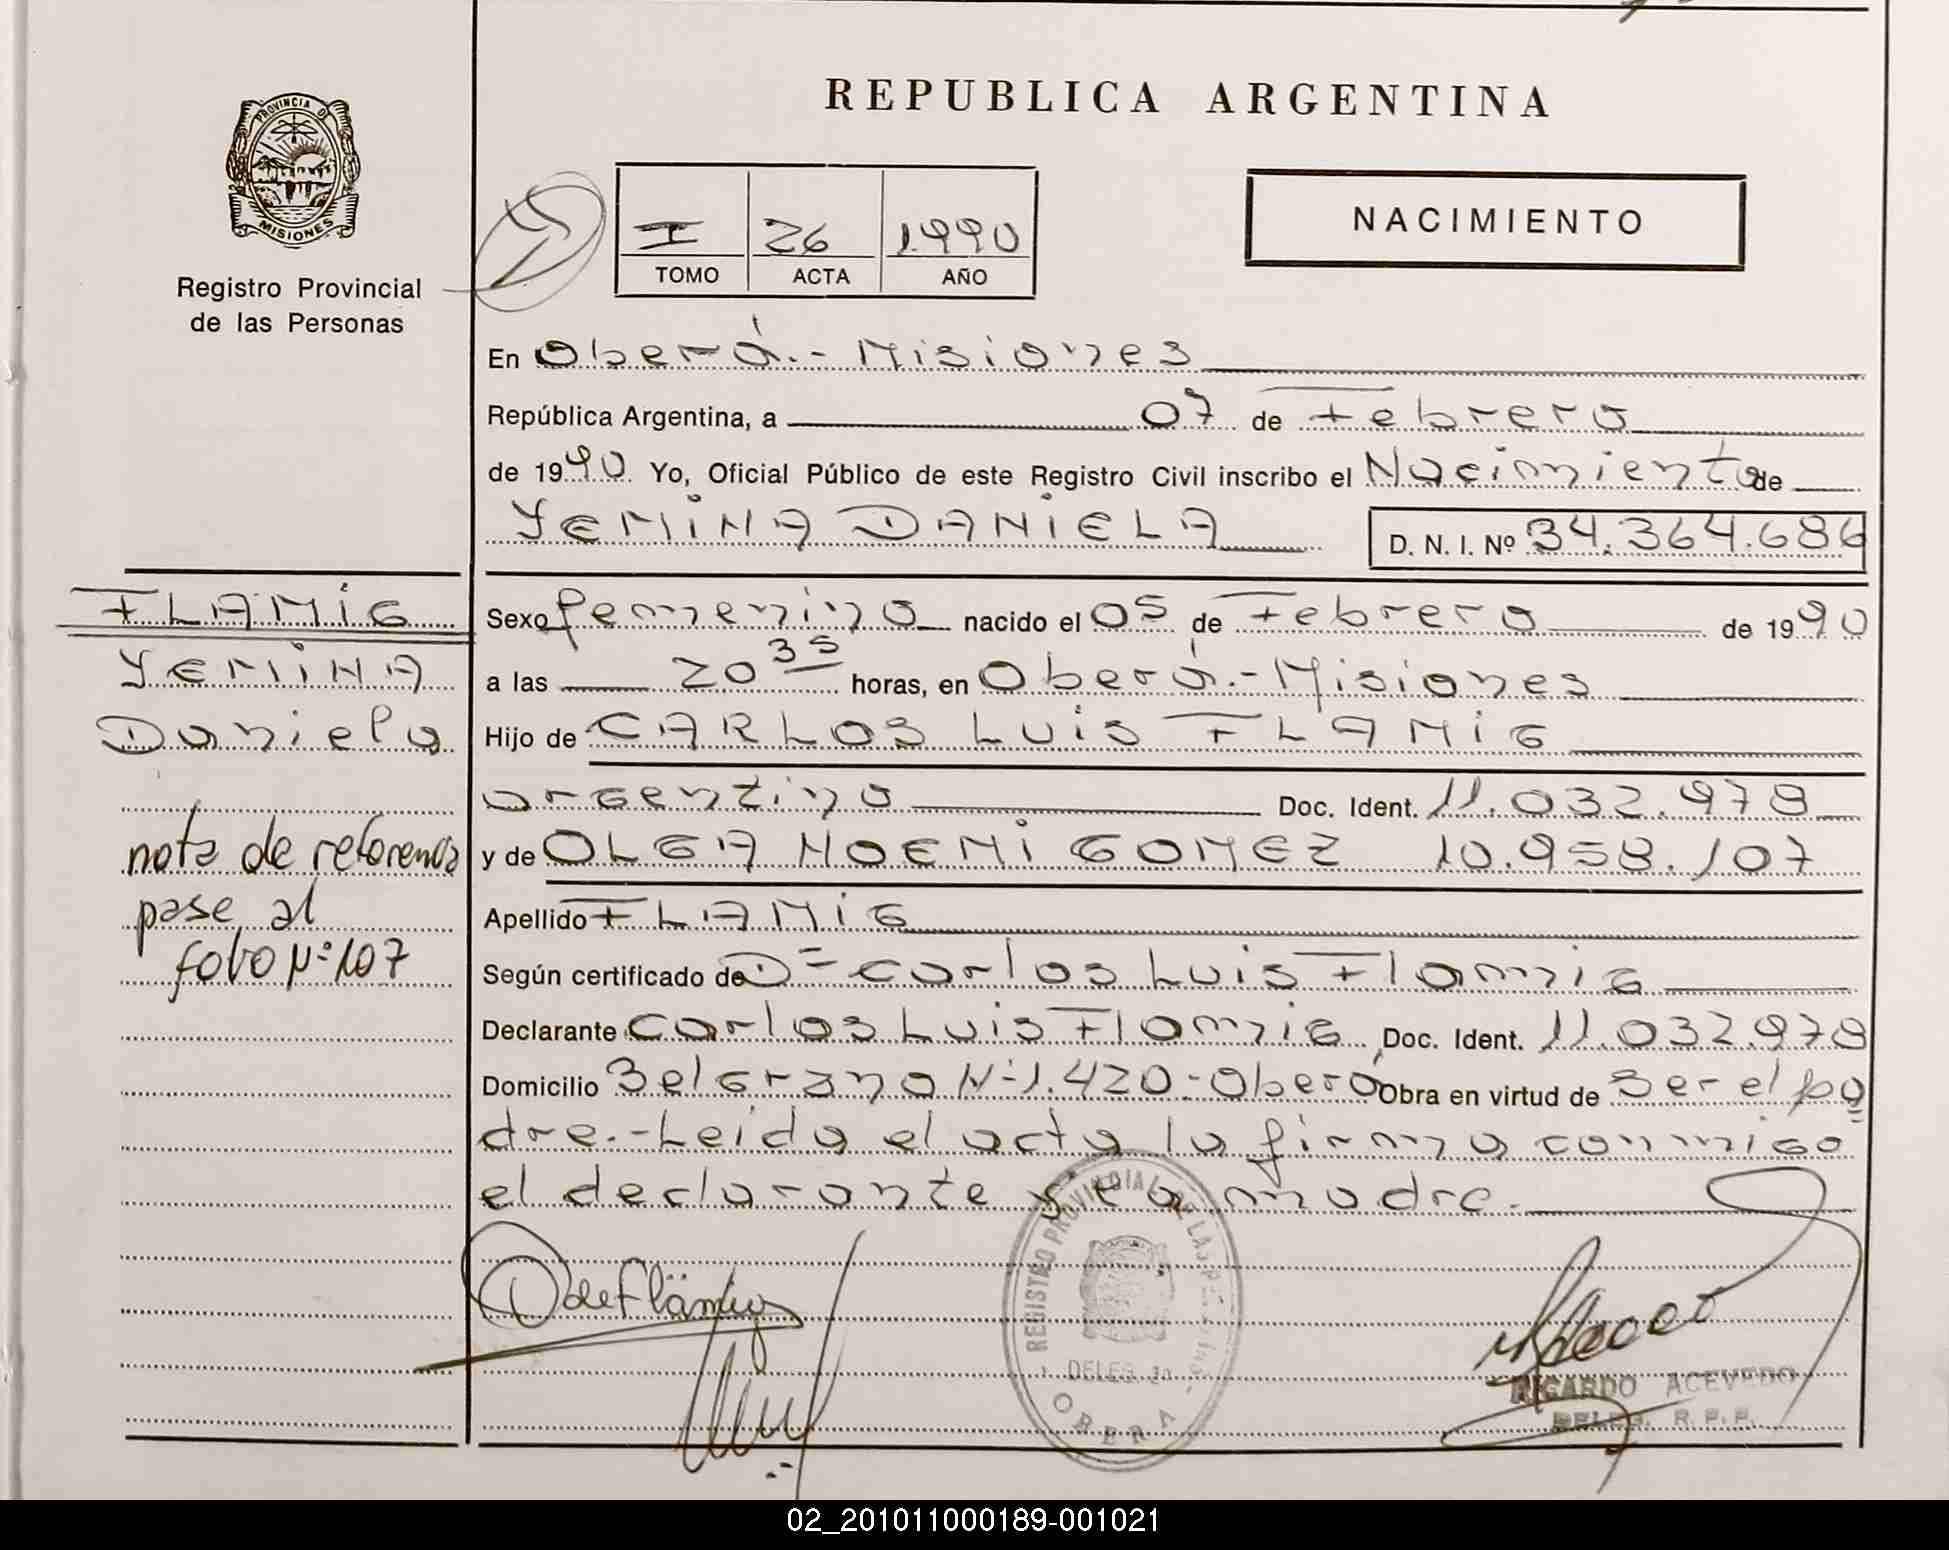 REPUBLICA ARGENTINA
PROVINCIA D
MISIONES
Registro Provincial
de las Personas
I 26 1990
TOMO ACTA AÑO
NACIMIENTO
En Oberá.- Misiones
República Argentina, a 07 de Febrero
de 1990 Yo, Oficial Público de este Registro Civil inscribo el Nacimiento de
YEMINA DANIELA D. N. I. Nº 34.364.686
FLAMIG
YEMINA
Daniela
nota de referencia
pase al
folio Nº 107
Sexo femenino nacido el 05 de Febrero de 1990
a las 20 35 horas, en Oberá.- Misiones
Hijo de CARLOS LUIS FLAMIG
argentino Doc. Ident. 11.032.978
y de OLGA NOEMI GOMEZ 10.958.107
Apellido FLAMIG
Según certificado de D= Carlos Luis Flamig
Declarante Carlos Luis Flamig Doc. Ident. 11.032.978
Domicilio Belgrano Nº 1.420-Oberá Obra en virtud de ser el pa
dre.-Leida el acta la firma conmigo
el declarante y la madre.
REGISTRO PROVINCIAL DE LAS
DELEG.
OBERA
RICARDO ACEVEDO
DELEG. R. P. P.
02_201011000189-001021